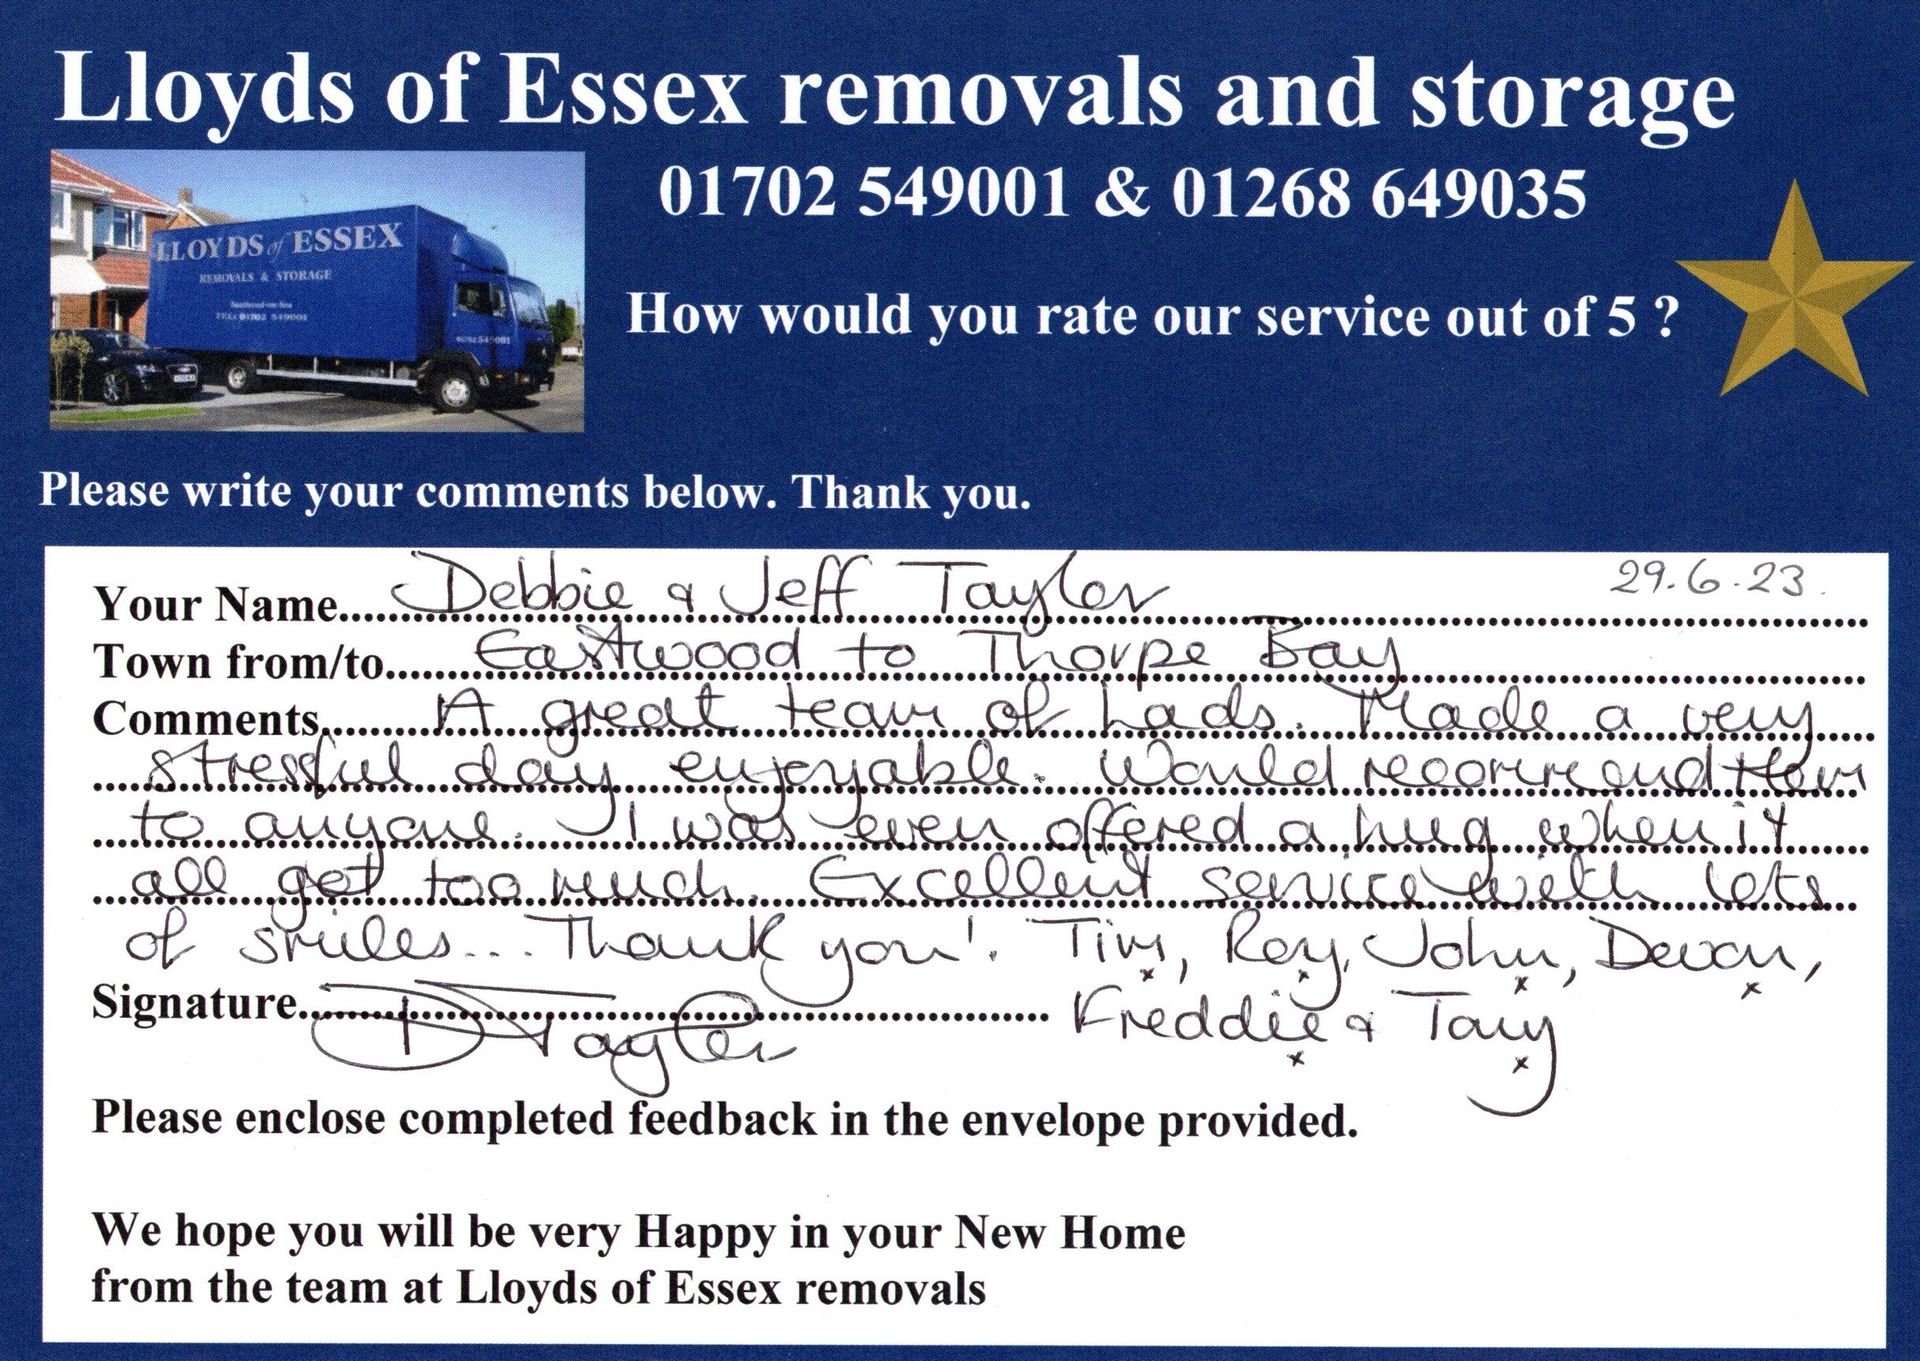 Lloyds of Essex removals and storage
01702 549001 & 01268 649035
LLOYDS of ESSEX
REMOVALS & STORAGE
Southend-on-Sea
TEL: 01702 549001
01702 549001
How would you rate our service out of 5 ?
Please write your comments below. Thank you.
29.6.23.
Your Name Debbie & Jeff Tayler
Town from/to Eastwood to Thorpe Bay
Comments A great team of Lads. Made a very
stressful day enjoyable. Would recommend them
to anyone. I was even offered a hug when it
all got too much. Excellent service with lots
of smiles... Thank you!. Tim, Roy, John, Devon,
x x x x
Signature D Tayler Freddie & Tony
x x
Please enclose completed feedback in the envelope provided.
We hope you will be very Happy in your New Home
from the team at Lloyds of Essex removals